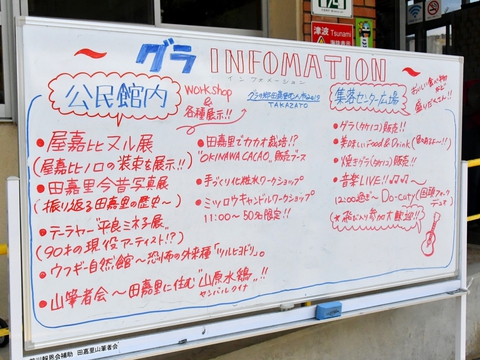 津波 Tsunami
グラ INFOMATION
インフォメーション
公民館内
WORKSHOP
&
各種展示!!
TAKAZATO
集落センター広場
・屋嘉比ヌル展
(屋嘉比ノロの装束を展示!!)
・田嘉里今昔写真展
(振り返る田嘉里の歴史〜)
・テーラヤー"平良ミネ子展"
(90才の現役アーティスト!?)
・ウフギー自然館〜恐怖の外来種「ツルヒヨドリ」。
・山筆者会〜田嘉里に住む"山原水鶏"!!
ヤンバルクイナ
・田嘉里でカカオ栽培!?
"OKINAWA CACAO"販売ブース
・手づくり化粧水ワークショップ
・ミツロウキャンドルワークショップ
11:00〜50名限定!!
・グラ(タケノコ)販売!!
・美味しいFood & Drink
・焼きグラ(タケノコ)販売!!
・音楽LIVE!!♫♫〜
12:00過ぎ〜Do-cuty(回顧フォークデュオ)
☆飛び入り参加大歓迎!!
田嘉里山筆者会